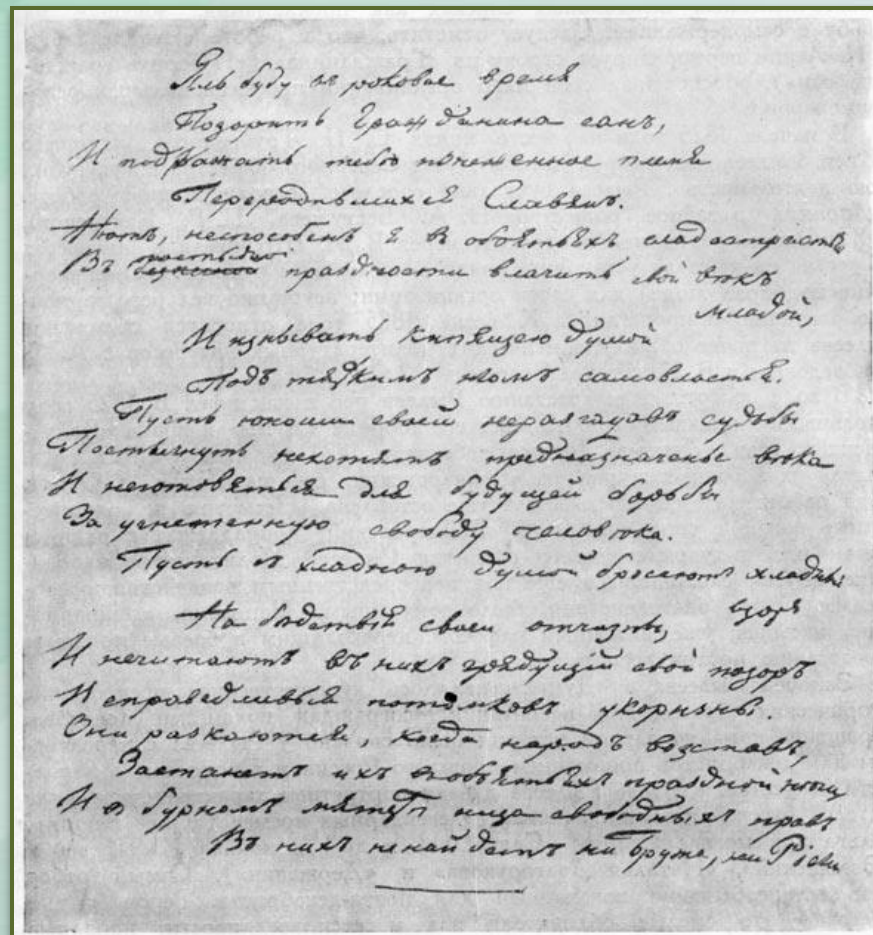 Яль буду въ роковое время
Позорить Гражданина санъ,
И подражать тебѣ изнеженное племя
Переродившихся Славянъ.
Нѣтъ, неспособенъ я въ объятьяхъ сладострастья
Въ постыдной праздности влачить свой вѣкъ
младой,
И изнывать кипящею душой
Подъ тяжкимъ игомъ самовластья.
Пусть юноши своей неразгадавъ судьбы
Постигнуть нехотятъ предназначенье вѣка
И неготовятся для будущей борьбы
За угнетенную свободу человѣка.
Пусть съ хладною душой бросаютъ хладный
взоръ
На бедствія своей отчизны,
И нечитаютъ въ нихъ грядущій свой позоръ
И справедливыя потомковъ укоризны.
Они раскаются, когда народъ возставъ
Застанетъ ихъ въ объятьяхъ праздной неги
И въ бурномъ мятежѣ ища свободныхъ правъ
Въ нихъ ненайдетъ ни Брута, ни Ріеги